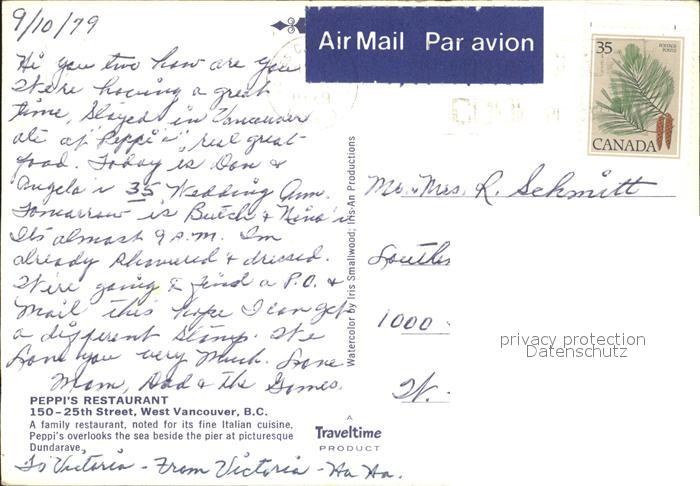 9/10/79
Hi you two how are you
We're having a great
time, Stayed in Vancouver
ate at "Peppi's", real great
food. Today is Don &
Angela's 35 Wedding Ann.
Tomorrow is Butch & Nina's
It's almost 9 A.M. Im
already showered & dressed.
We're going to find a P.O. &
Mail this hope I can get
a different Stamp. We
Love you very Much. Love
Mom, Dad & the Gomes.
PEPPI'S RESTAURANT
150-25th Street, West Vancouver, B.C.
A family restaurant, noted for its fine Italian cuisine,
Peppi's overlooks the sea beside the pier at picturesque
Dundarave.
To Victoria - From Victoria - Ha Ha.
Watercolor by Iris Smallwood; Ihs-An Productions
A
Traveltime
PRODUCT
Air Mail Par avion
35
POSTAGE
POSTES
CANADA
Mr. & Mrs. R. Schmitt
1000
W.
privacy protection
Datenschutz